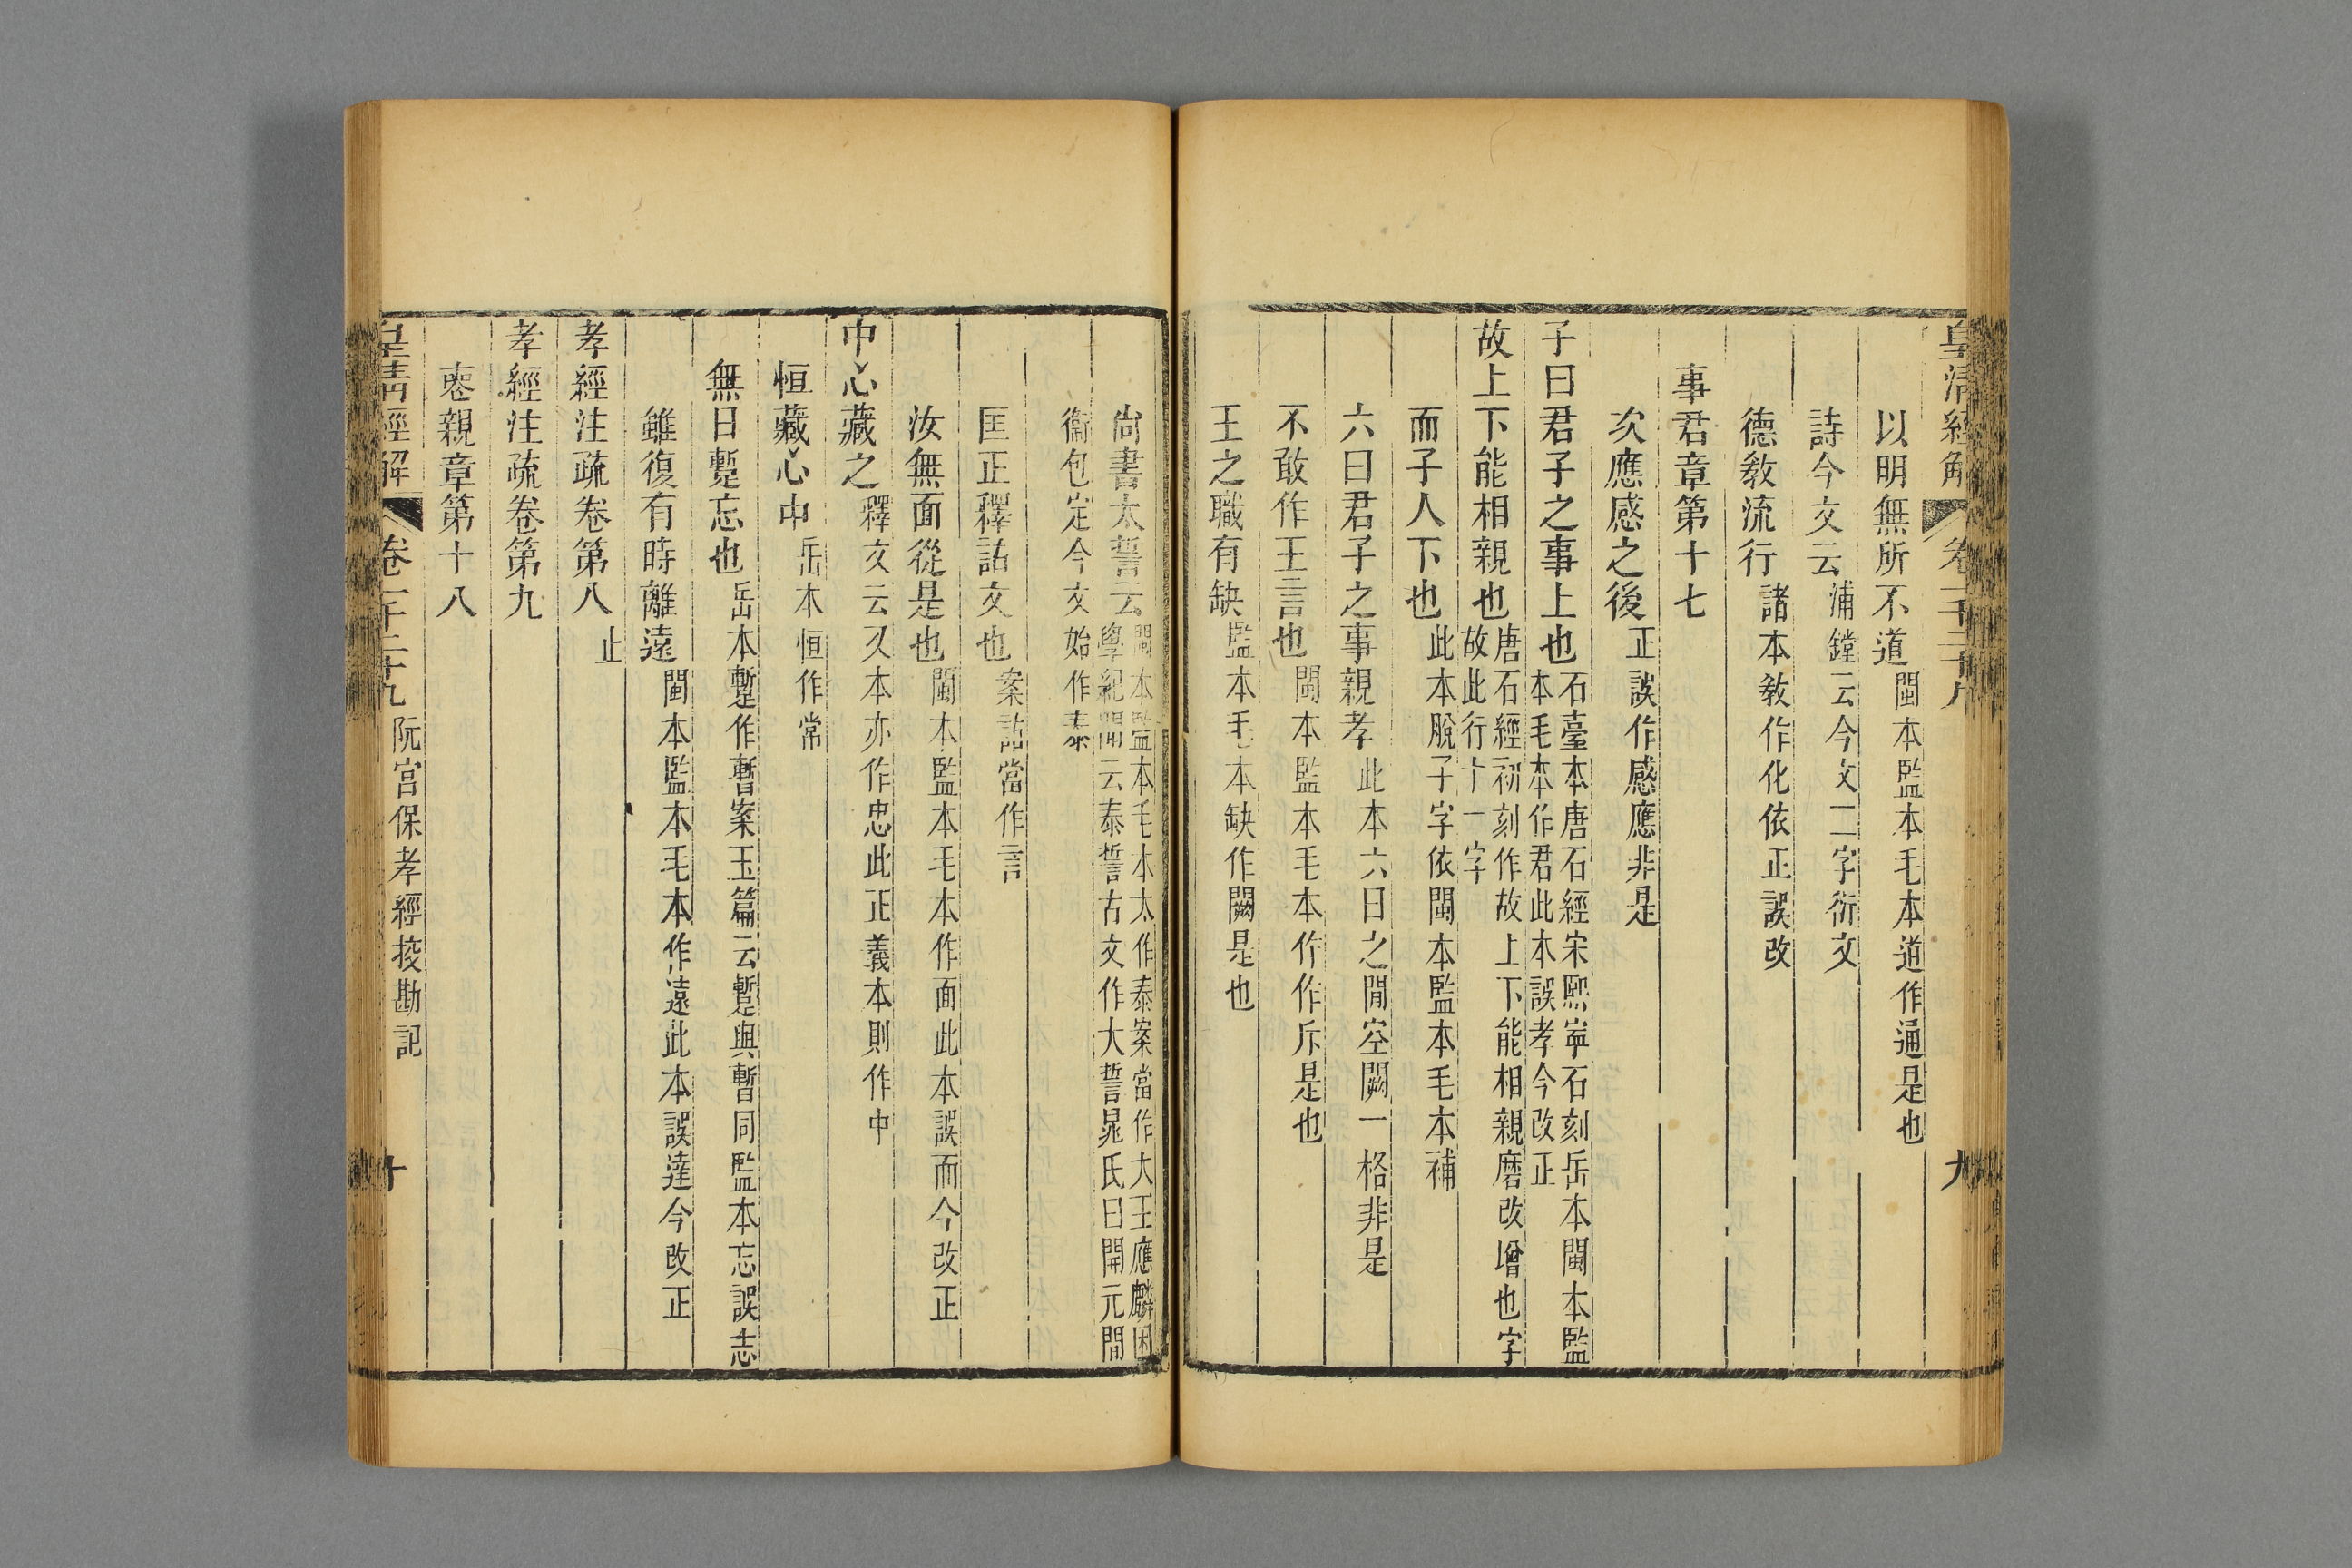 皇清經解 卷一千二十九 九
以明無所不道 閩本監本毛本道作通是也
詩今文云 浦鏜云今文二字衍文
德敎流行 諸本敎作化依正誤改
事君章第十七
次應感之後 正誤作感應非是
子曰君子之事上也 石臺本唐石經宋熙寧石刻岳本閩本監
本毛本作君此本誤孝今改正
故上下能相親也 唐石經初刻作故上下能相親磨改增也字
故此行十一字
而子人下也 此本脫子字依閩本監本毛本補
六曰君子之事親孝 此本六曰之閒空闕一格非是
不敢作王言也 閩本監本毛本作作斥是也
王之職有缺 監本毛本缺作闕是也
尙書太誓云 閩本監本毛本太作泰案當作大王應麟困
學紀聞云泰誓古文作大誓晁氏曰開元間
衞包定今文始作泰
匡正釋詁文也 案詁當作言
汝無面從是也 閩本監本毛本作面此本誤而今改正
中心藏之 釋文云又本亦作忠此正義本則作中
恒藏心中 岳本恒作常
無日蹔忘也 岳本蹔作暫案玉篇云蹔與暫同監本忘誤志
雖復有時離遠 閩本監本毛本作遠此本誤達今改正
孝經注疏卷第八 止
孝經注疏卷第九
喪親章第十八
皇清經解 卷一千二十九 阮宮保孝經挍勘記 十